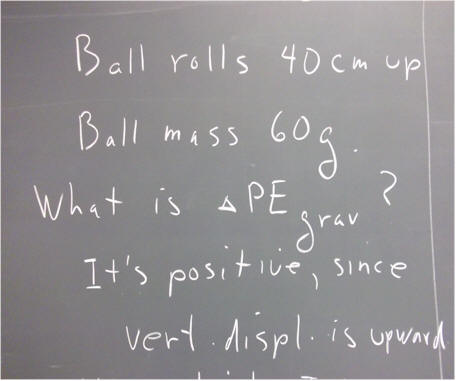 Ball rolls 40cm up
Ball mass 60g.
What is ΔPE grav ?
It's positive, since
vert. displ. is upward